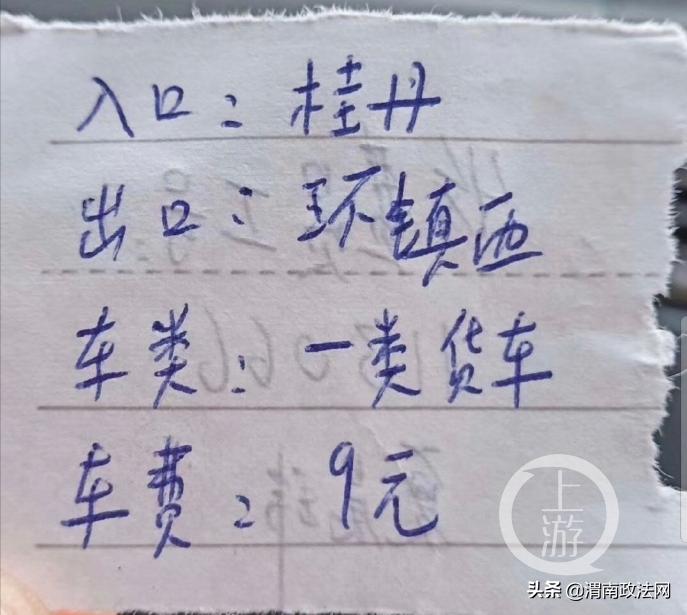 入口：桂丹
出口：环镇西
车类：一类货车
车费：9元
上游
头条 @渭南政法网